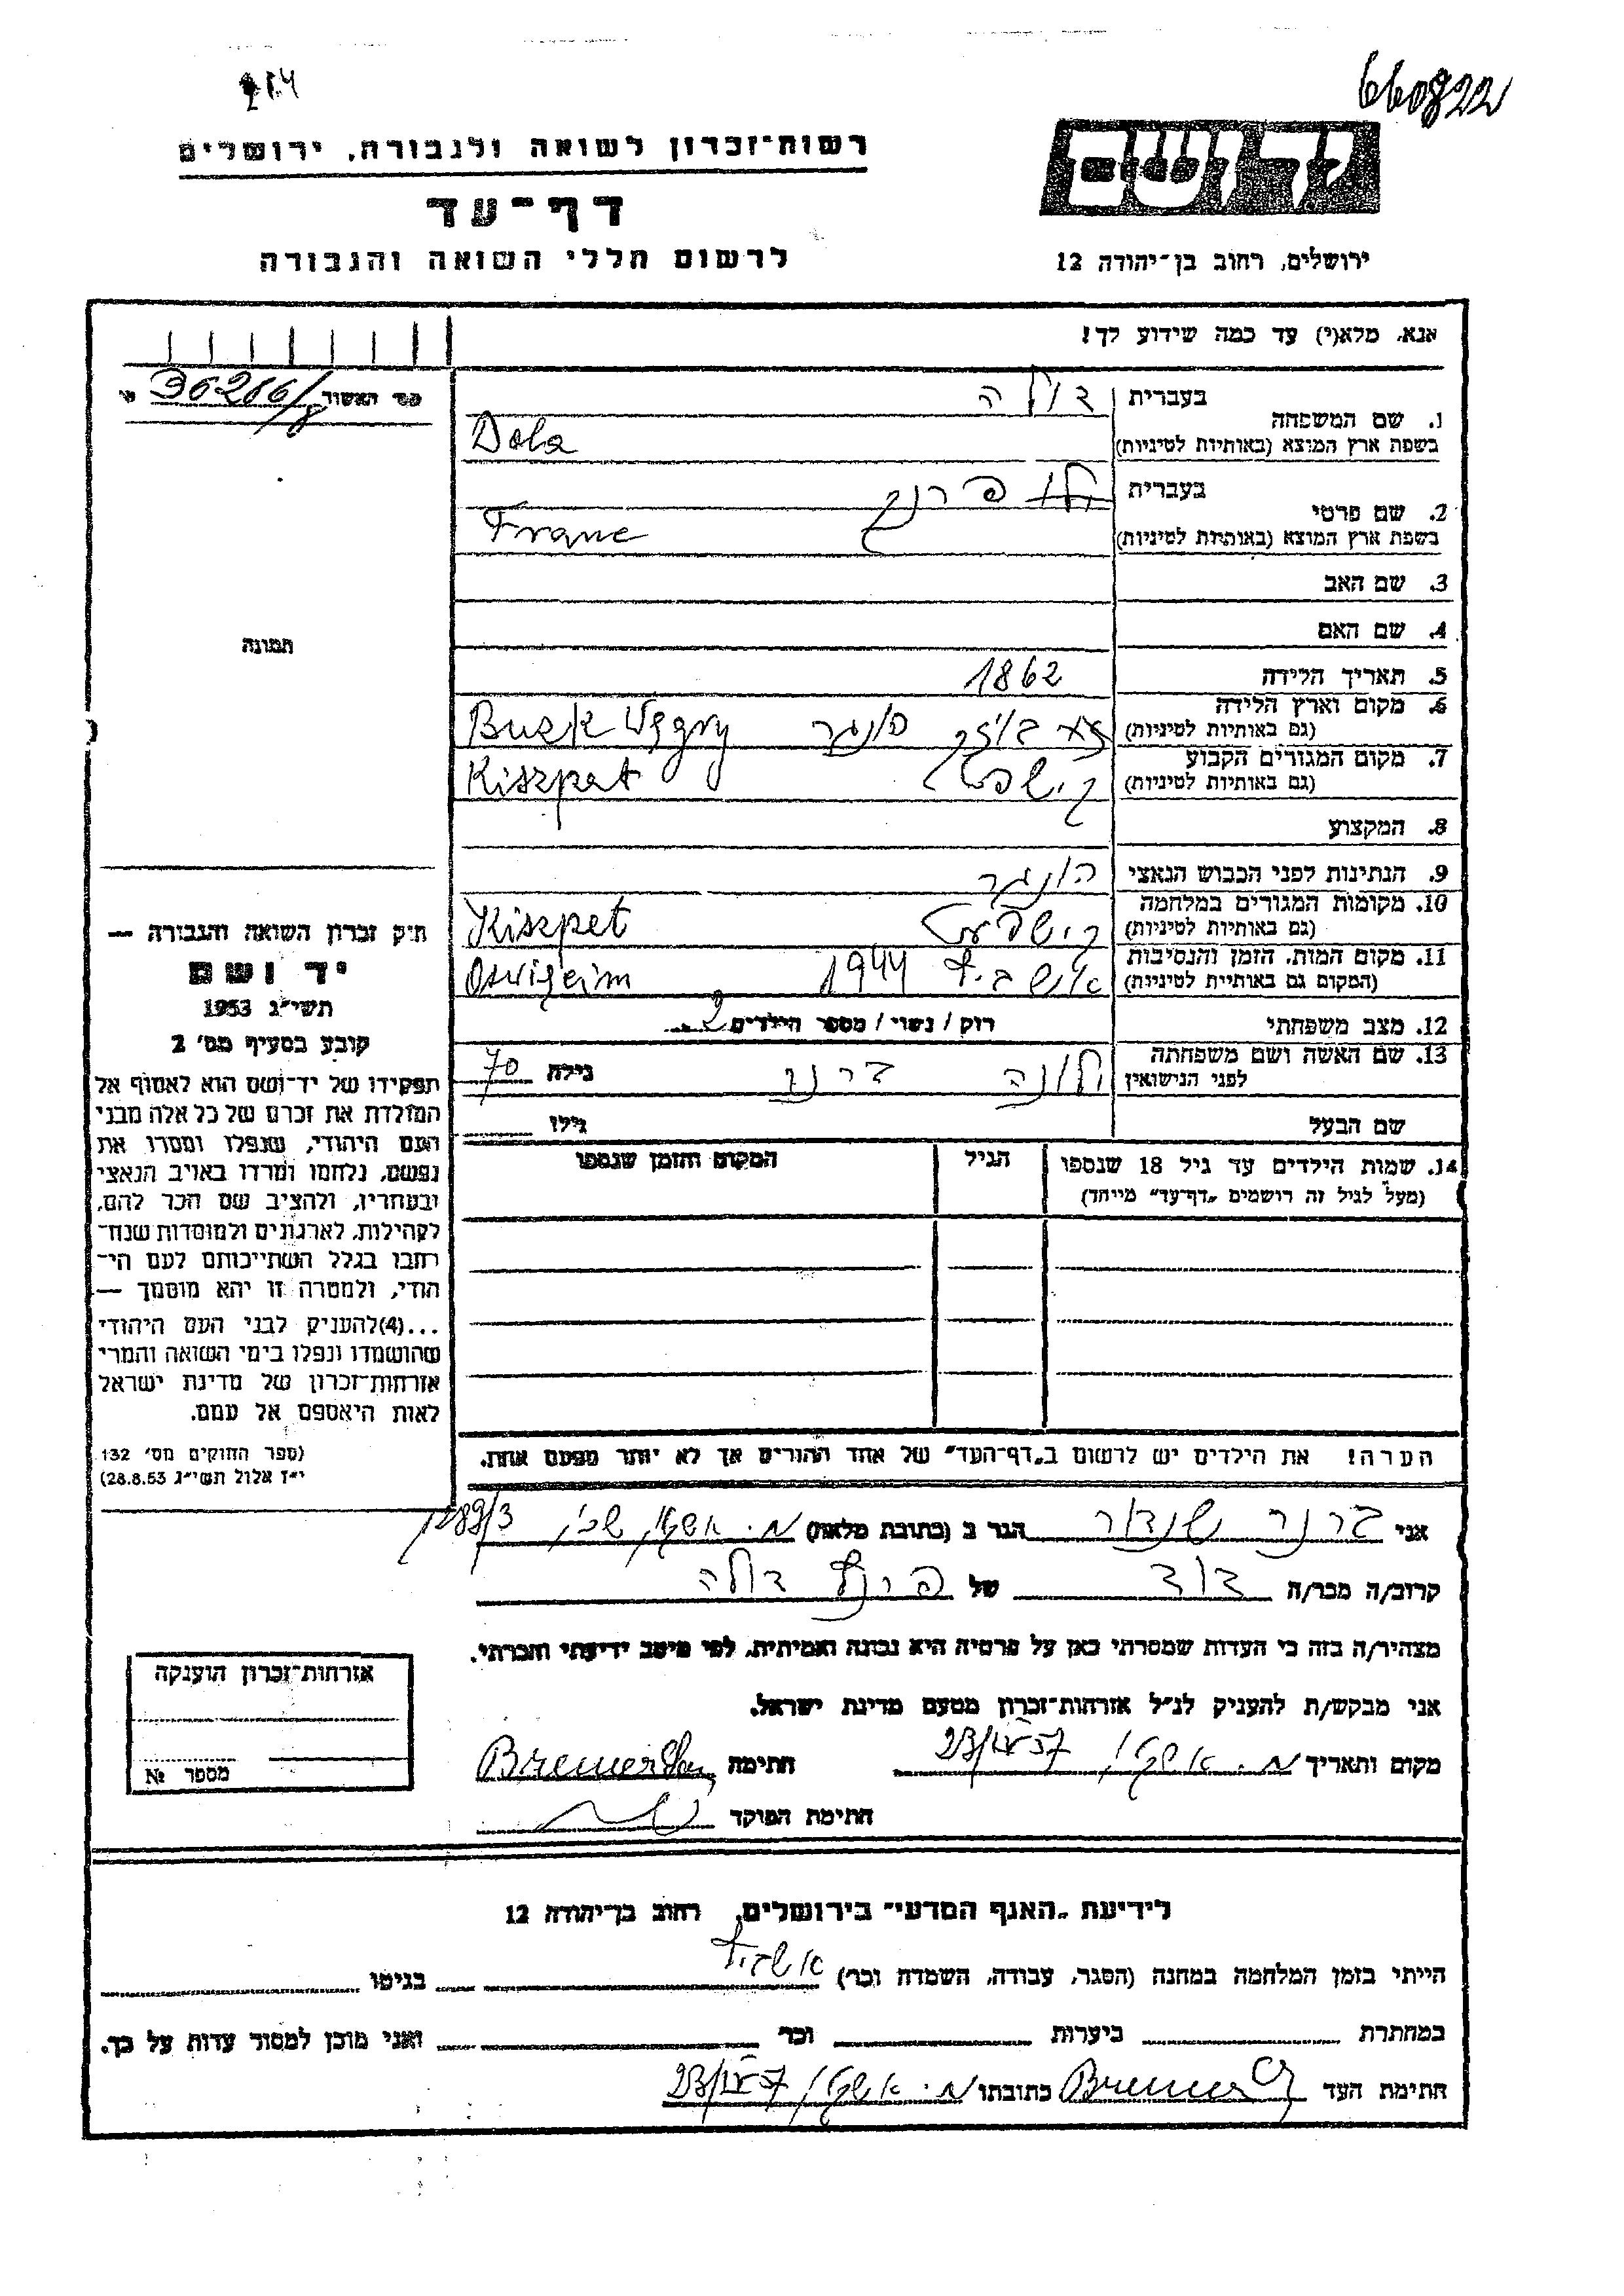 660822
יד ושם
ירושלים, רחוב בן־יהודה 12
רשות־זכרון לשואה ולגבורה, ירושלים
דף־עד
לרשום חללי השואה והגבורה
אנא, מלא(י) עד כמה שידוע לך!
מס׳ האשור 36266/8
תמונה
1. שם המשפחה בעברית דולה
בשפת ארץ המוצא (באותיות לטיניות) Dola
2. שם פרטי בעברית פרנץ
בשפת ארץ המוצא (באותיות לטיניות) Franc
3. שם האב
4. שם האם
5. תאריך הלידה 1862
6. מקום וארץ הלידה הונגר Busk Węgry
(גם באותיות לטיניות)
7. מקום המגורים הקבוע קישפט Kiszpet
(גם באותיות לטיניות)
8. המקצוע
9. הנתינות לפני הכבוש הנאצי הונגר
10. מקומות המגורים במלחמה קישפט Kiszpet
(גם באותיות לטיניות)
11. מקום המות, הזמן והנסיבות 1944
(המקום גם באותיות לטיניות)
12. מצב משפחתי רוק / נשוי / מספר הילדים 2
13. שם האשה ושם משפחתה ילונה ברנר גילה 70
לפני הנישואין
שם הבעל גילו
14. שמות הילדים עד גיל 18 שנספו הגיל המקום והזמן שנספו
(מעל לגיל זה רושמים „דף־עד" מייחד)
הערה! את הילדים יש לרשום ב„דף־העד" של אחד ההורים אך לא יותר מפעם אחת.
חוק זכרון השואה והגבורה —
יד ושם
תשי״ג 1953
קובע בסעיף מס׳ 2
תפקידו של יד־ושם הוא לאסוף אל
המולדת את זכרם של כל אלה מבני
העם היהודי, שנפלו ומסרו את
נפשם, נלחמו ומרדו באויב הנאצי
ובעוזריו, ולהציב שם וזכר להם,
לקהילות, לארגונים ולמוסדות שנח־
רבו בגלל השתייכותם לעם הי־
הודי, ולמטרה זו יהא מוסמך —
...(4)להעניק לבני העם היהודי
שהושמדו ונפלו בימי השואה והמרי
אזרחות־זכרון של מדינת ישראל
לאות היאספם אל עמם.
(ספר החוקים מס׳ 132
י״ז אלול תשי״ג 28.8.53)
אני ברנר שנדור הגר ב (כתובת מלאה) מ. אשקלון 1289/3
קרוב/ה מכר/ה דוד של פרנץ דולה
מצהיר/ה בזה כי העדות שמסרתי כאן על פרטיה היא נכונה ואמיתית, לפי מיטב ידיעתי והכרתי.
אני מבקש/ת להעניק לנ״ל אזרחות־זכרון מטעם מדינת ישראל.
מקום ותאריך מ. אשקלון 57 חתימה
חתימת הפוקד
אזרחות־זכרון הוענקה
מספר №
לידיעת „האגף המדעי" בירושלים, רחוב בן־יהודה 12
הייתי בזמן המלחמה במחנה (הסגר, עבודה, השמדה וכו׳) בגיטו
במחתרת ביערות וכו׳ ואני מוכן למסור עדות על כך.
חתימת העד כתובתו מ. אשקלון 57